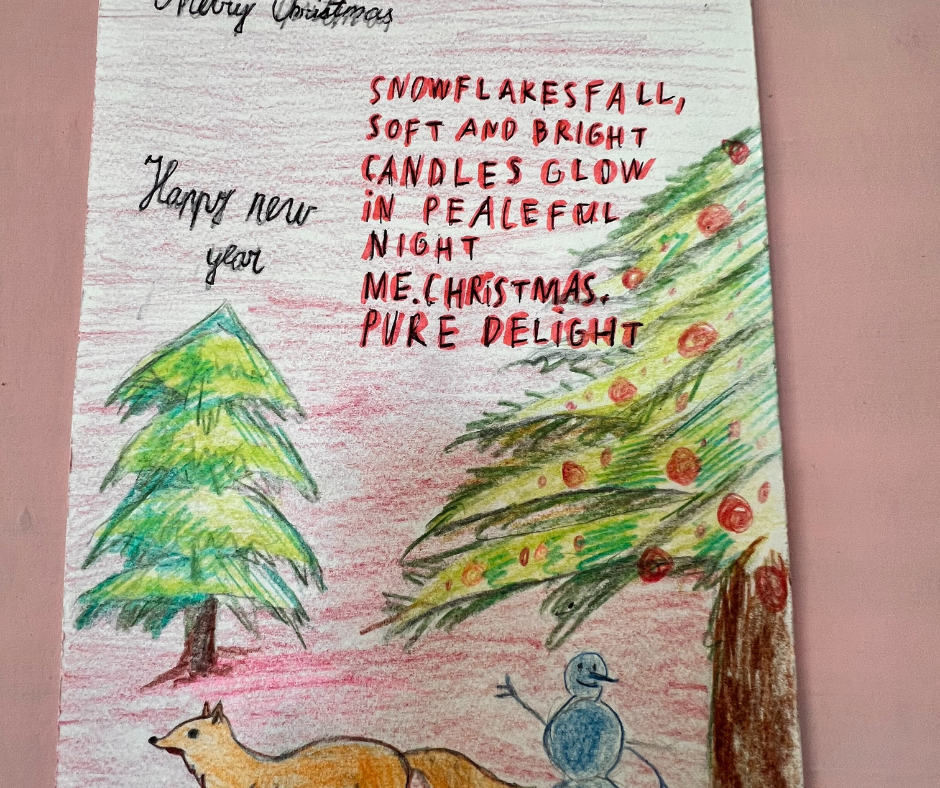 Merry Christmas
SNOWFLAKES FALL,
SOFT AND BRIGHT
CANDLES GLOW
iN PEALEFUL
NIGHT
ME.CHRiSTMAS.
PURE DELiGHT
Happy new
year